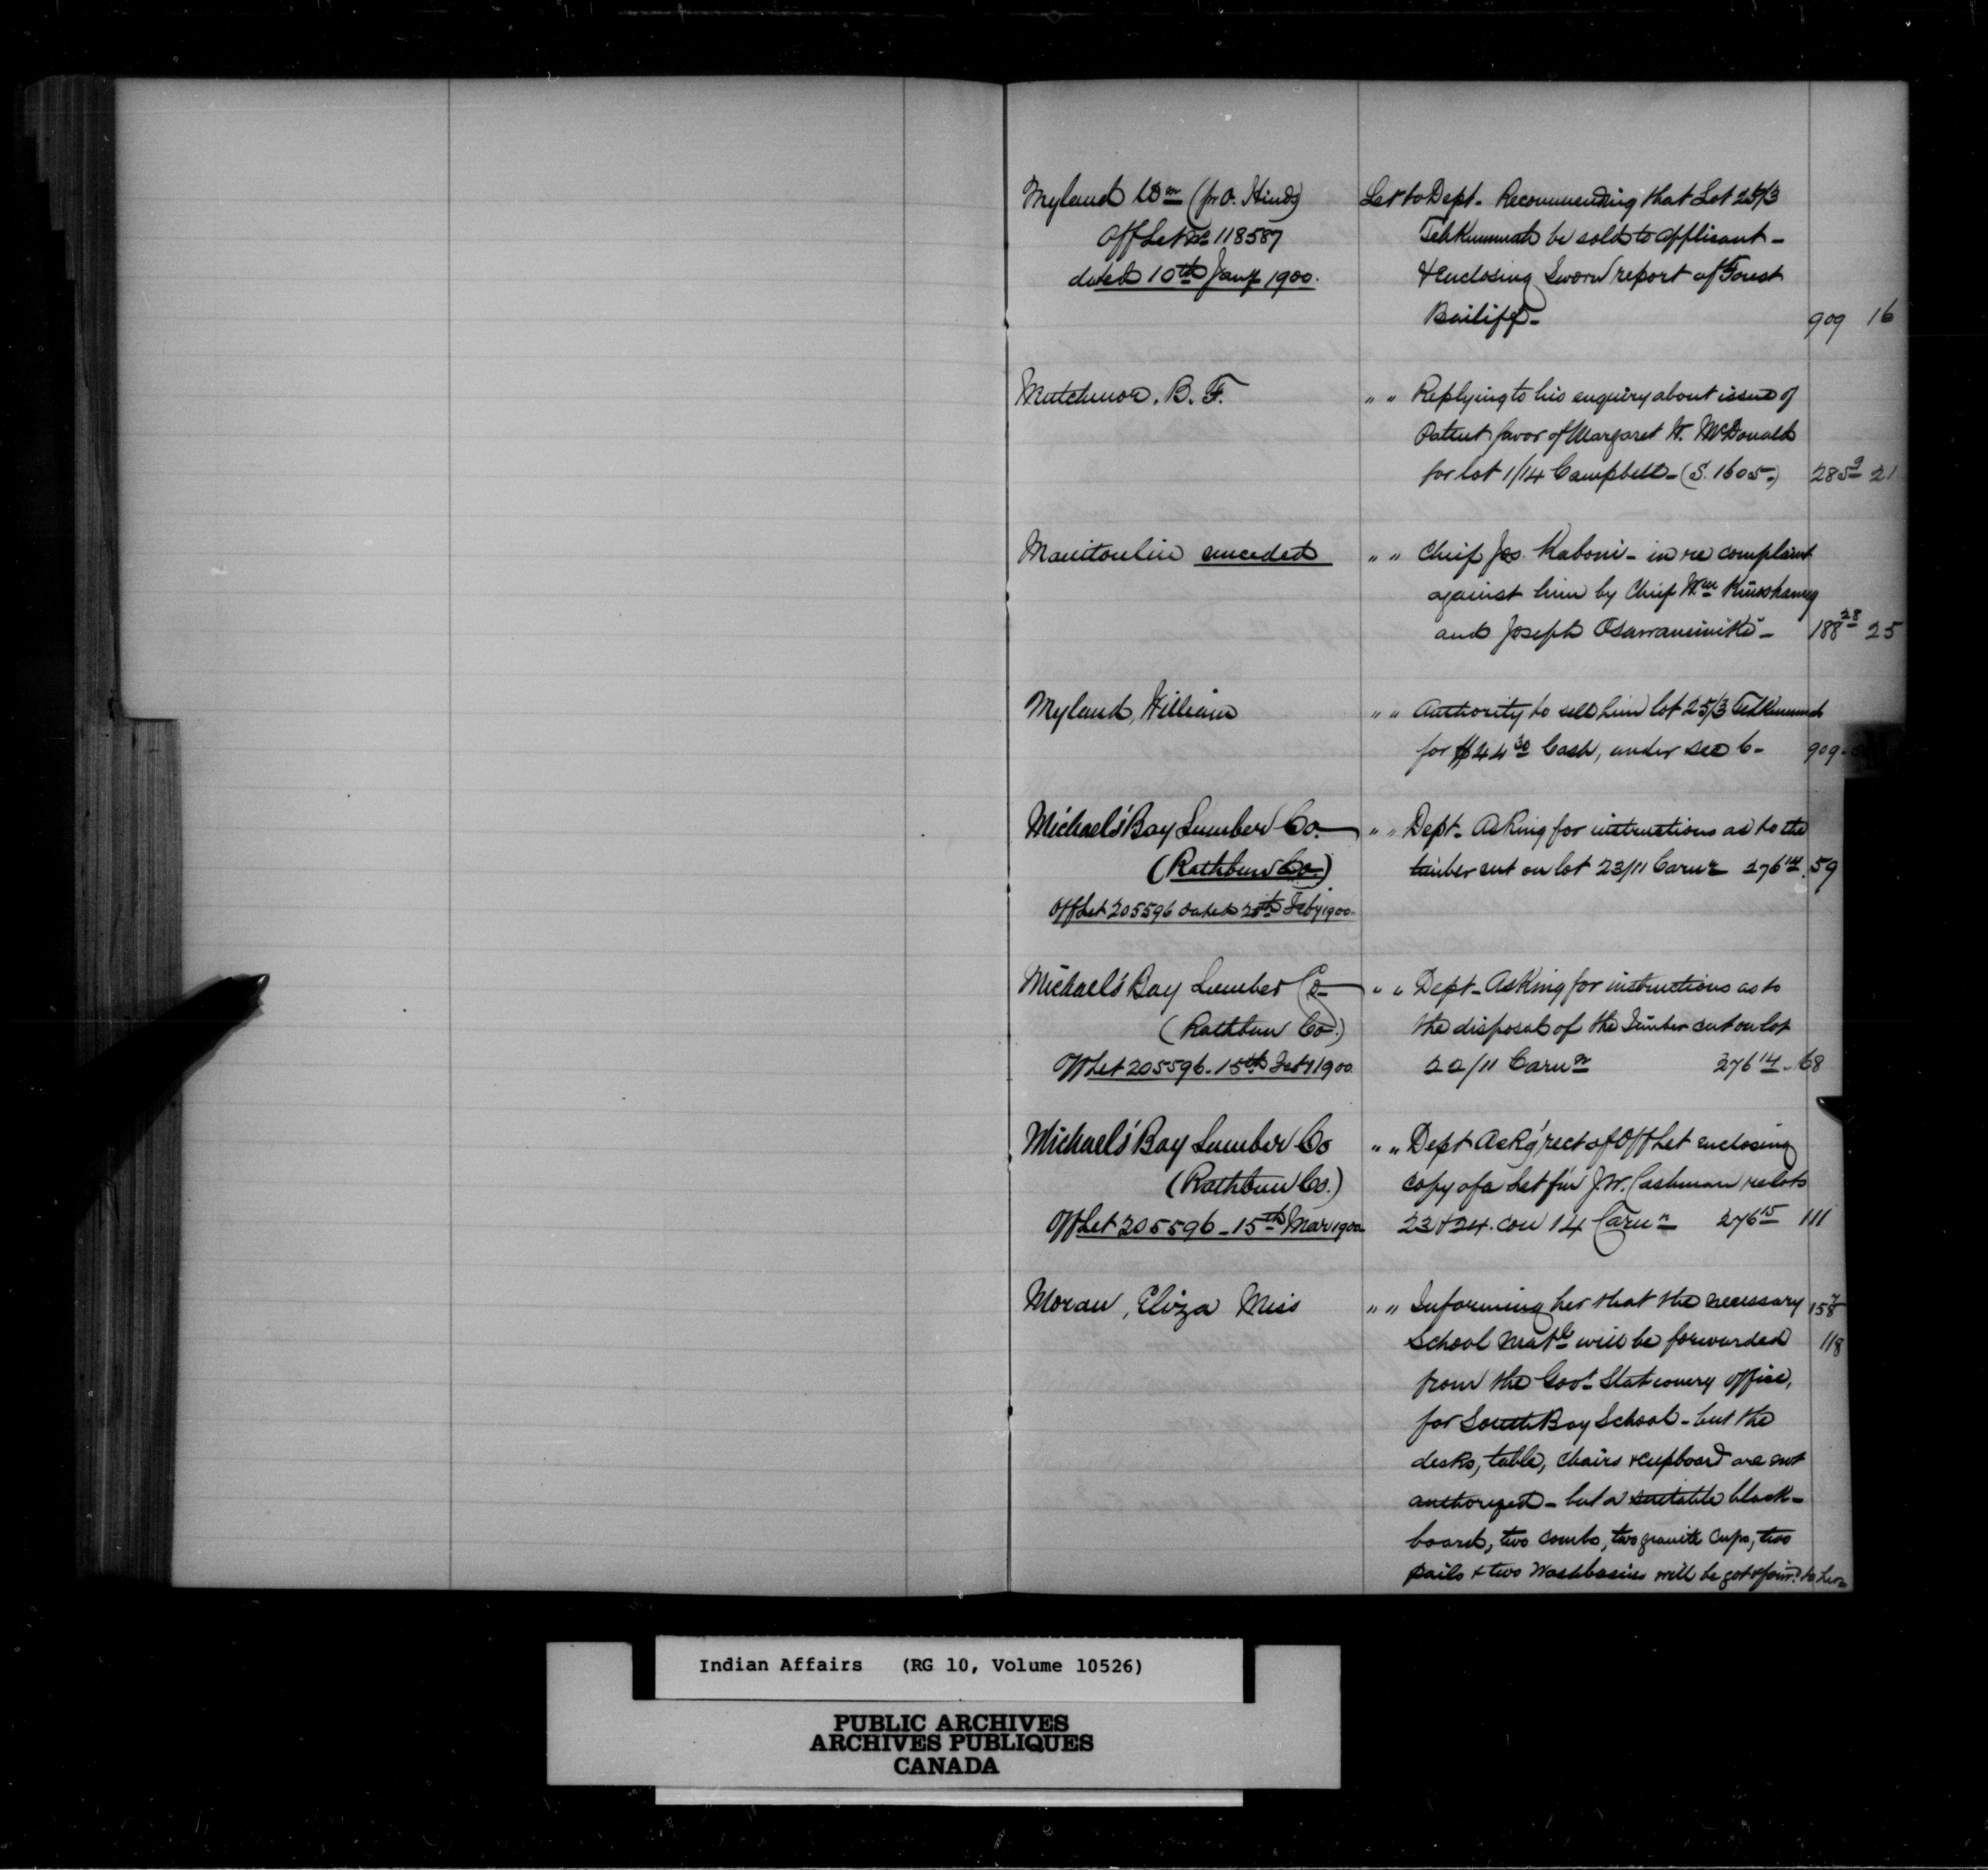 Myland Wm (pr O. Hinds) Let to Dept. Recommending that Lot 25/3
Off Let No 118587 Tehkummah be sold to applicant -
dated 10th Jany 1900. & Enclosing Sworn report of Forest
Bailiff - 909 16
Mutchmor, B. F. " " Replying to his enquiry about issue of
Patent favor of Margaret W. McDonald
for lot 1/14 Campbell - (S. 1605.) 285 9 21
Manitoulin unceded " " Chief Jos. Kaboni - in re complaint
against him by Chief Wm Kinoshameg
and Joseph - 188 28 25
Myland, William " " Authority to sell him lot 25/3 Tehkummah
for $44 30 Cash, under sec 6 - 909
Michael's Bay Lumber Co. " " Dept - Asking for instructions as to the
(Rathbun Co.) timber cut on lot 23/11 Carnn 276 14. 59
Off Let 205596 dated Feby 1900
Michael's Bay Lumber Co - " " Dept - Asking for instructions as to
(Rathbun Co.) the disposal of the Timber cut on lot
Off Let 205596 - 15th Feby 1900 22/11 Carnn 276 14 - 68
Michael's Bay Lumber Co " " Dept Ackg rect of Off Let enclosing
(Rathbun Co.) copy of a Let fm J.W. Cashman re lots
Off Let 205596 - 15th Mar 1900 23 & 24. con 14 Carnn 276 15 111
Moran, Eliza Miss " " Informing her that the necessary 158 7
School matl will be forwarded 118
from the Govt Stationery office,
for South Bay School - but the
desks, table, chairs & cupboard are not
authorized - but a suitable black-
board, two combs, two granite cups, two
pails & two Washbasins will be got & forwd to her
Indian Affairs (RG 10, Volume 10526)
PUBLIC ARCHIVES
ARCHIVES PUBLIQUES
CANADA